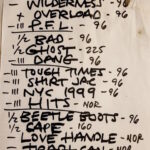 WILDERNESS - 96
+ OVERLOAD - 96
-III P.F.L. - 96
1/2 BAD - 96
1/2 GHOST - 225
-III DANG - 96
-III TOUGH TIMES - 96
-III SHIRT JAC - 96
-III NYC 1999 - 96
-III HITS - NOR
1/2 BEETLE BOOTS - 96
1/2 CAPE - 160
- LOVE HANDLE - NOR